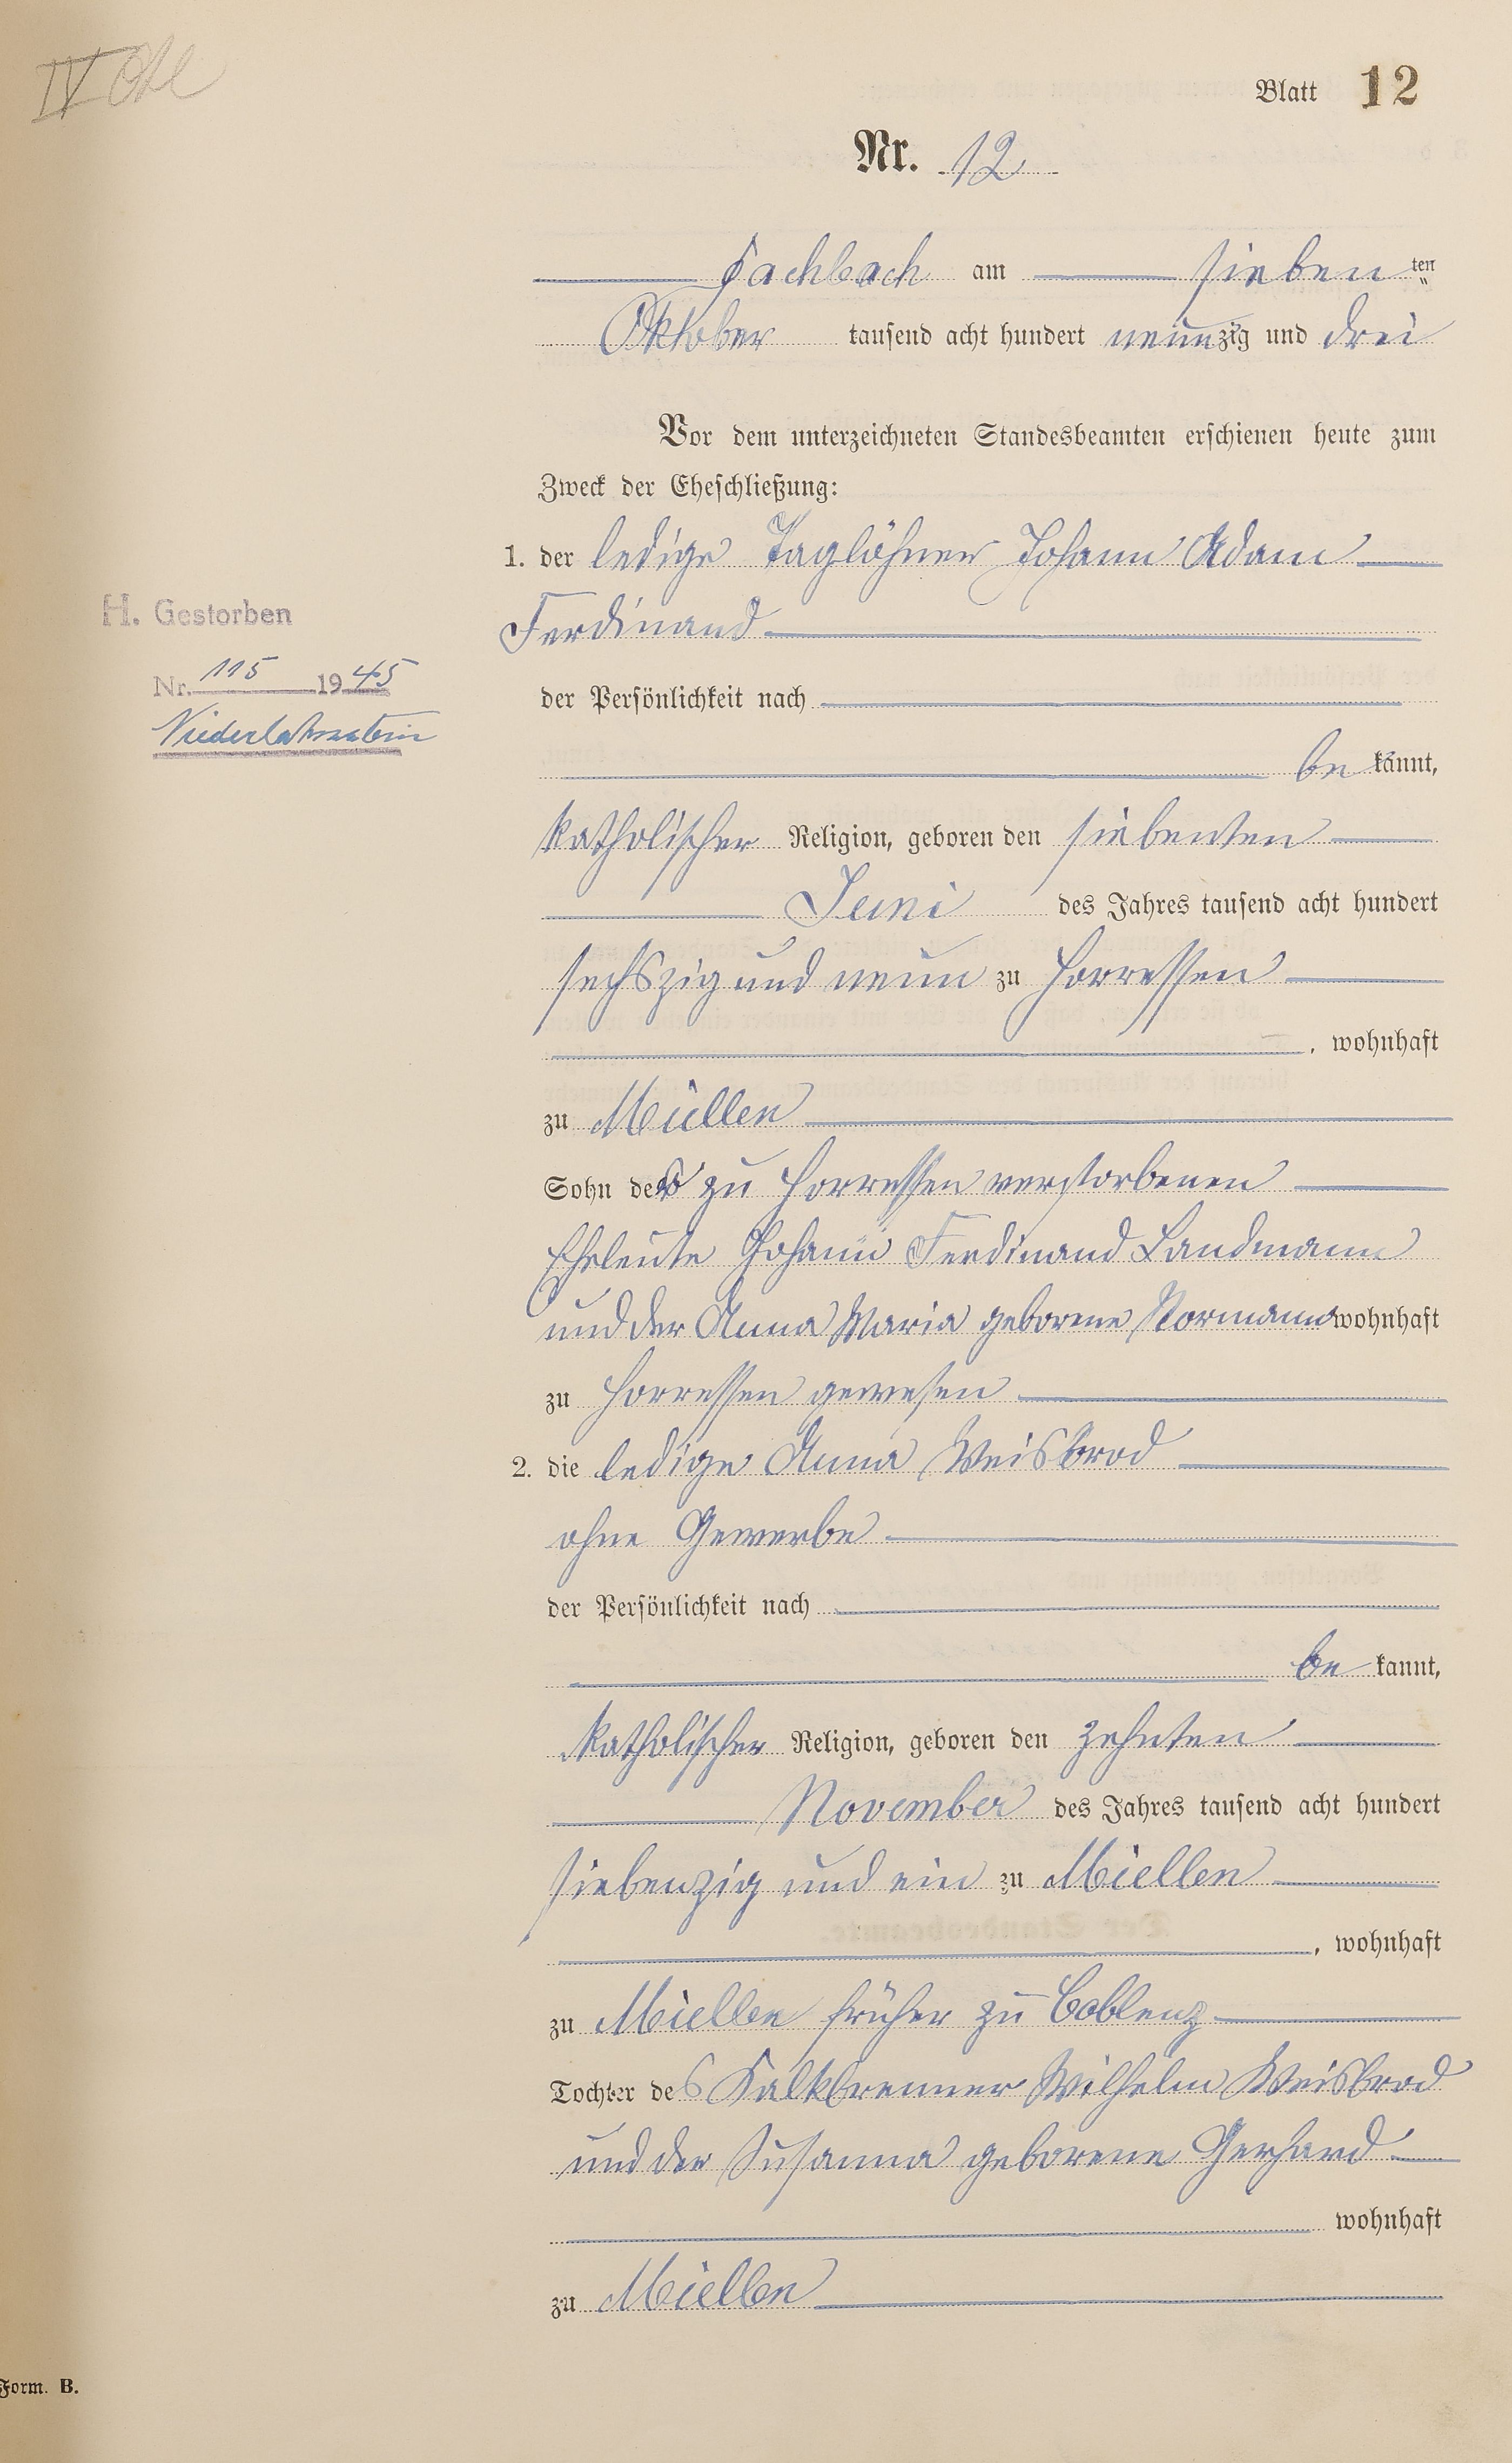 Blatt 12
Nr. 12
Fachbach am sieben ten
Oktober tausend acht hundert neunzig und drei
Vor dem unterzeichneten Standesbeamten erschienen heute zum
Zweck der Eheschließung:
1. der ledige Taglöhner Johann Adam
Ferdinand
der Persönlichkeit nach
be kannt,
katholischer Religion, geboren den siebenten
Juni des Jahres tausend acht hundert
sechszig und neun zu Horressen
, wohnhaft
zu Miellen
Sohn der zu Horressen verstorbenen
Eheleute Johann Ferdinand Landmann
und der Anna Maria geborene Normann wohnhaft
zu Horressen gewesen
2. die ledige Anna Weisbrod
ohne Gewerbe
der Persönlichkeit nach
be kannt,
katholischer Religion, geboren den zehnten
November des Jahres tausend acht hundert
siebenzig und ein zu Miellen
, wohnhaft
zu Miellen früher zu Coblenz
Tochter des Kalkbrenner Wilhelm Weisbrod
und der Susanna geborene Gerhard
wohnhaft
zu Miellen
H. Gestorben
Nr. 115 1945
Niederlahnstein
Form. B.